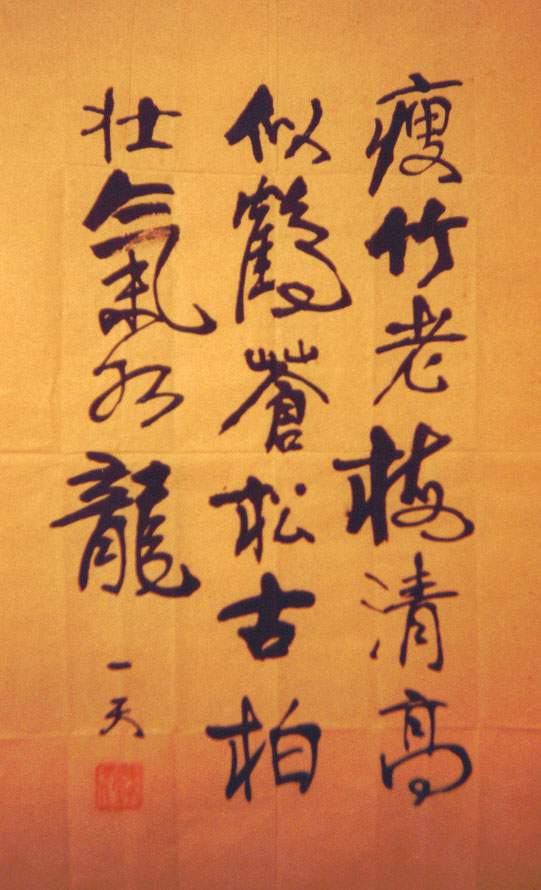 瘦竹老梅清高
似鶴蒼松古柏
壯氣如龍
一天